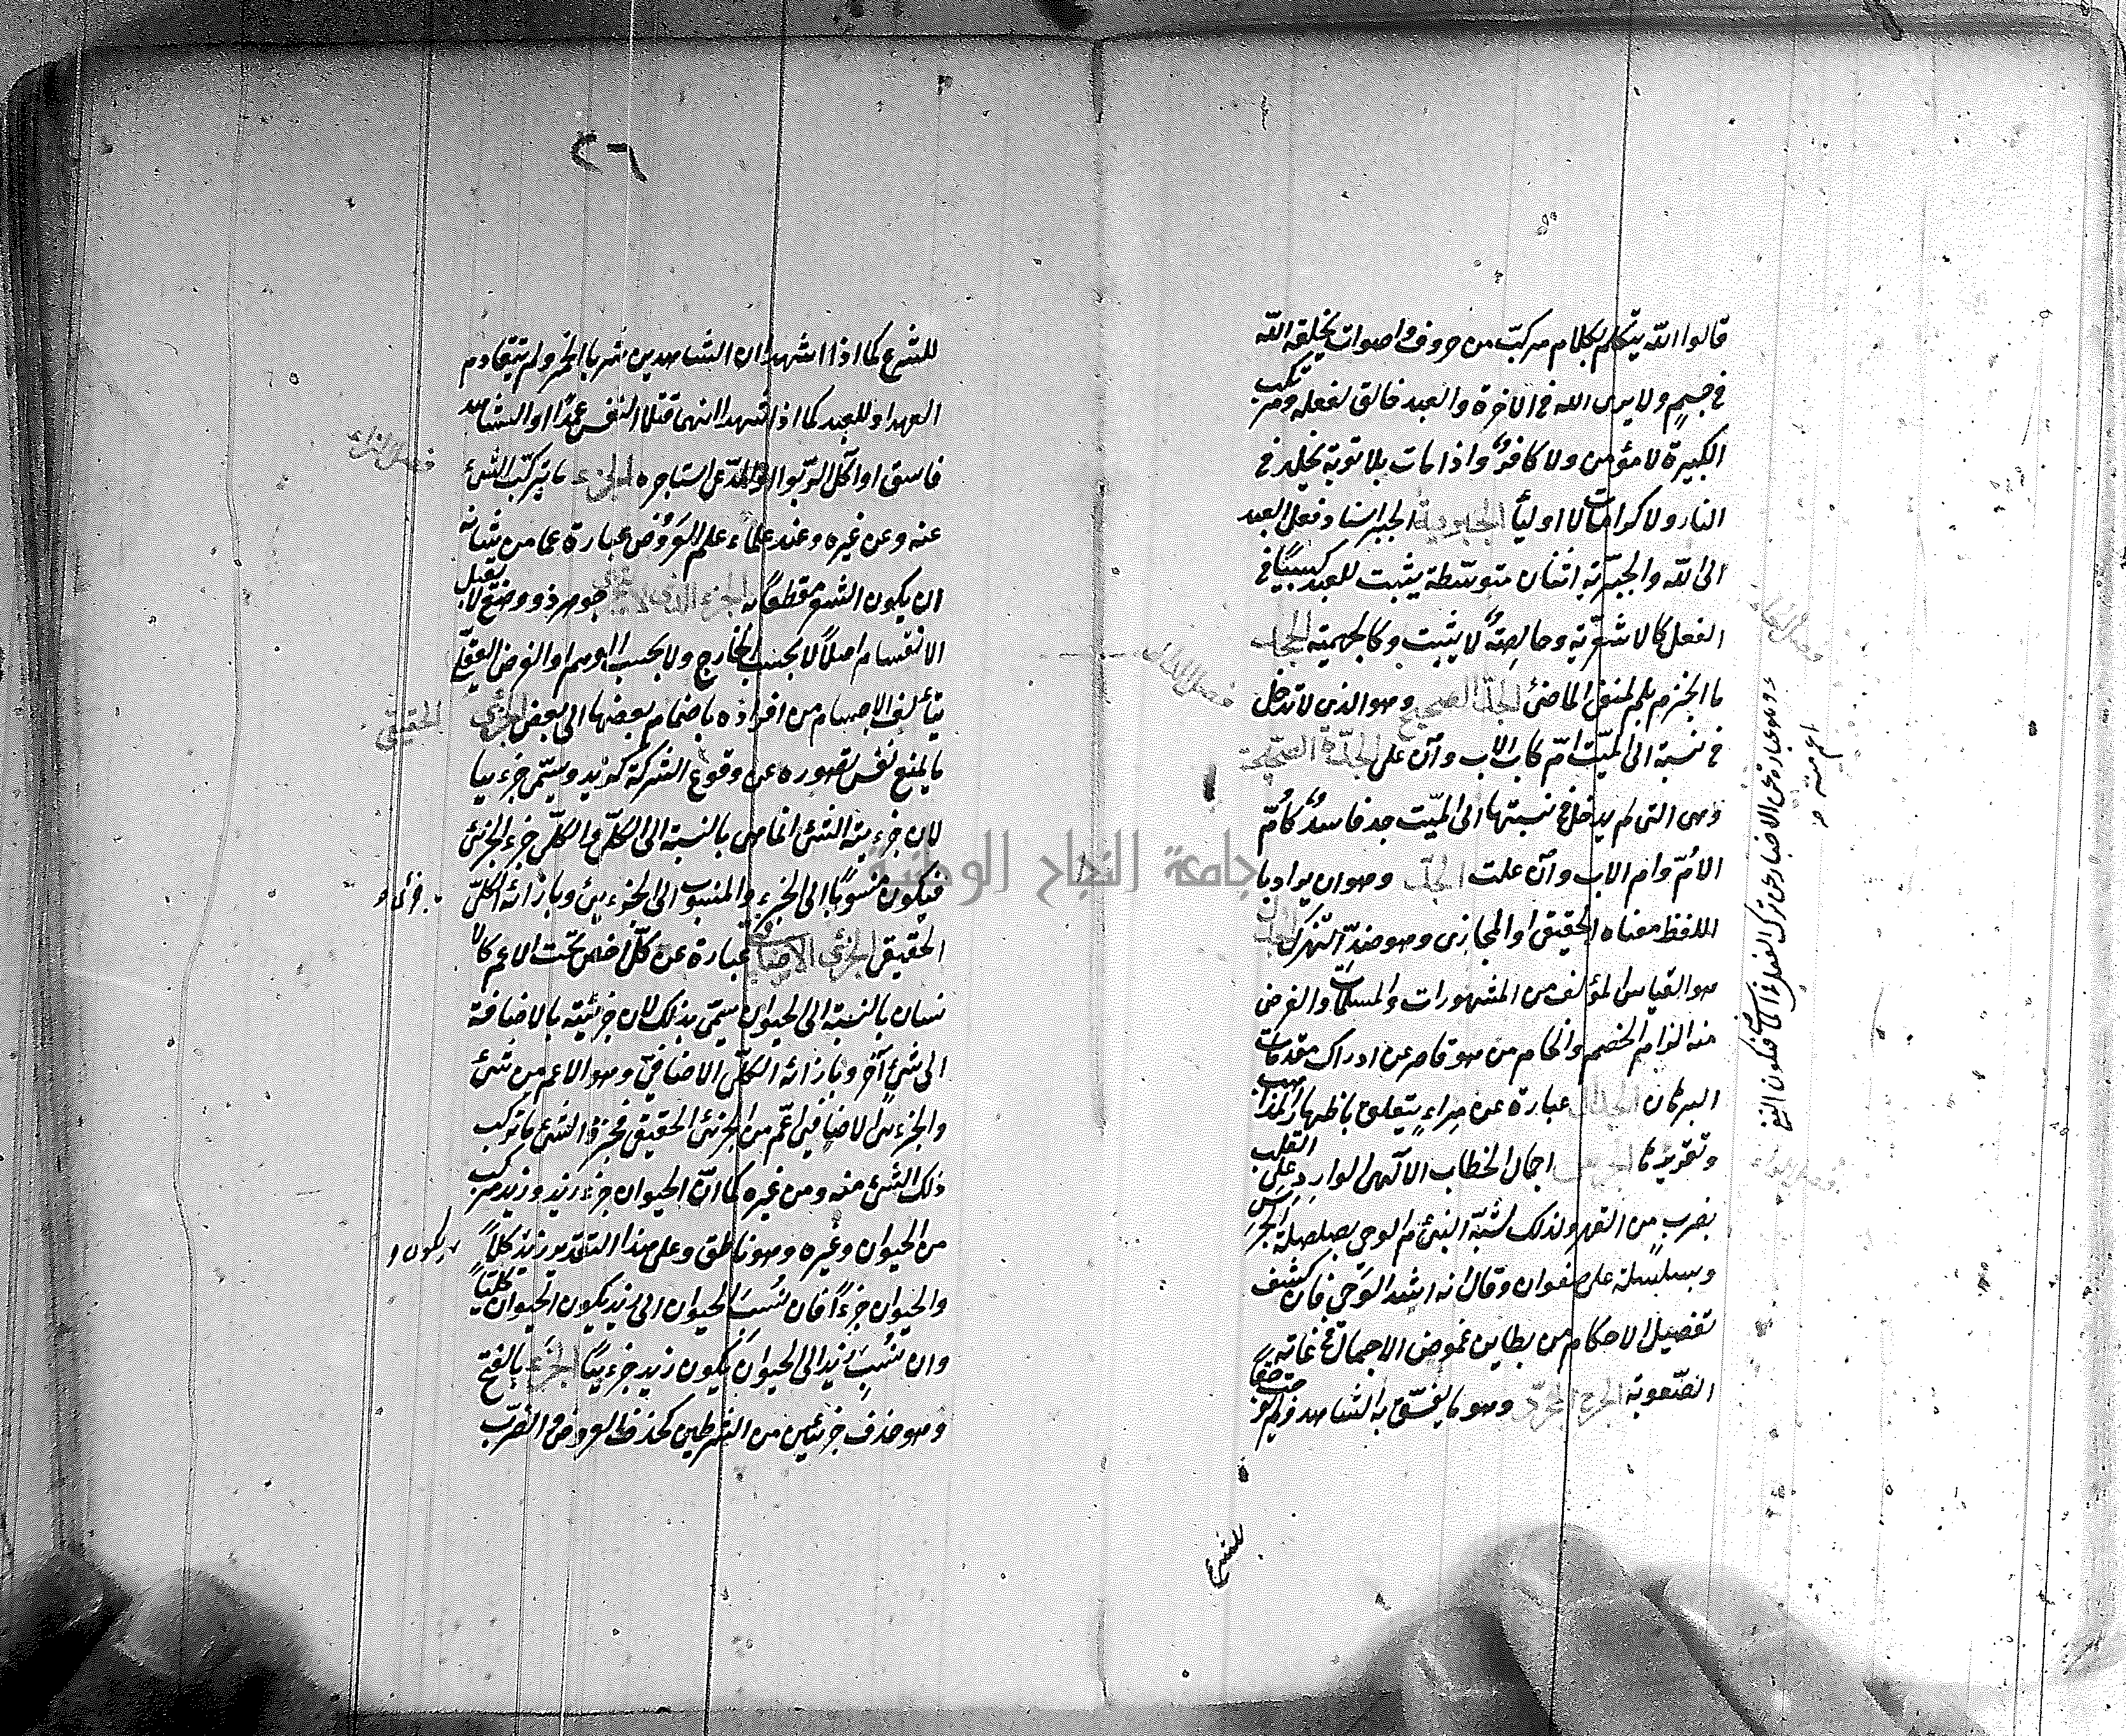 قالوا الله يتكلم بكلام مركب من حروف واصوات يخلقه الله
فى جسم ولا يرى الله فى الاخرة والعبد خالق لفعله ومرتكب
الكبيرة لا مؤمن ولا كافر واذا مات بلا توبة يخلد فى
النار ولا كرامات للاولياء الجبرية الجبر اسناد فعل العبد
الى الله والجبرية اثنان متوسطة يثبت للعبد كسبا فى
الفعل كالاشعرية وخالصة لا يثبت وكالجهمية الجحد
ما انجزم بلم لنفى الماضى الجد الصحيح وهو الذى لا تدخل
فى نسبة الى الميت ام كاب الاب وان على الجدة الصحيحة
وهى التى لم يدخل فى نسبتها الى الميت جد فاسد كام
الام وام الاب وان علت الجد وهو ان يراد با
للفظ معناه الحقيقى او المجازى وهو ضد الهزل الجدل
هو القياس المؤلف من المشهورات والمسلمات والغرض
منه الزام الخصم وافحام من هو قاصر عن ادراك مقدمات
البرهان الجدال عبارة عن مراء يتعلق باظهار المذاهب
وتقريرها الجرس اجمال الخطاب الالهى الوارد على القلب
بضرب من القهر ولذلك شبه النبى عم الوحى بصلصلة الجرس
وبسلسلة على صفوان وقال انه اشد الوحى فان كشف
تفصيل الاحكام من بطاين غموض الاجمال فى غاية
الصعوبة الجرح المجرد وهو ما يفسق به الشاهد ولم يوجب حقا
للشرع
وهو عبارة عن الاخبار عن ترك الفعل فى الماضى فيكون النفى
اعم منه
٢٦
للشرع كما اذا شهد ان الشاهدين شربا الخمر ولم يتقادم
العهد او للعبد كما اذا شهد انهما قتلا النفس عمدا او الشاهد
فاسق او اكل الربوا او المدعى استاجره الجزء ما يتركب الشئ
عنه وعن غيره وعند علماء علم العروض عبارة عما من شانه
ان يكون الشعر مقطعا به الجزء الذى لا يتجزى جوهر ذو وضع لا يقبل
الانقسام اصلا لا بحسب الخارج ولا بحسب الوهم او الفرض العقلى
يتألف الاجسام من افراده بانضمام بعضها الى بعض الجزئى الحقيقى
ما يمنع نفس تصوره عن وقوع الشركة كزيد ويسمى جزئيا
لان جزئية الشئ انما هى بالنسبة الى الكلى والكلى جزء الجزئى
فيكون منسوبا الى الجزء والمنسوب الى الجزء جزئى وبازائه الكلى
الحقيقى الجزئى الاضافى عبارة عن كل اخص تحت الاعم كالا
نسان بالنسبة الى الحيوان سمى بذلك لان جزئيته بالاضافة
الى شئ آخر وبازائه الكلى الاضافى وهو الاعم من شئ
والجزئى الاضافى اعم من الجزئى الحقيقى فجزء الشئ ما تركب
ذلك الشئ منه ومن غيره كما ان الحيوان جزء زيد وزيد مركب
من الحيوان وغيره وهو ناطق وعلى هذا التقدير زيد كلا يكون
والحيوان جزءا فان نسب الحيوان الى زيد يكون الحيوان كليا
وان نسب زيد الى الحيوان يكون زيد جزئيا الجزء بالفتح
وهو حذف جزئين من الشطرين كحذف العروض والضرب
جامعة النجاح الوطنية